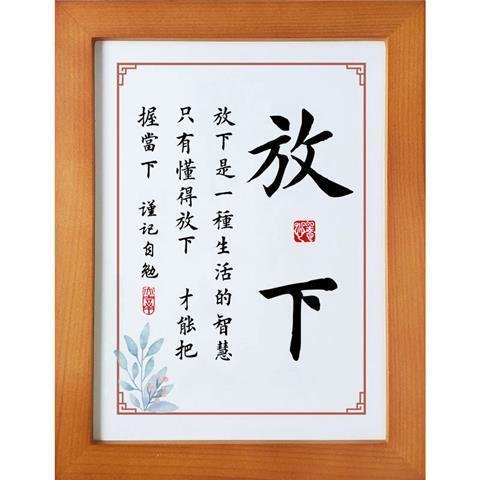 放下
放下是一種生活的智慧
只有懂得放下 才能把
握當下 谨记自勉